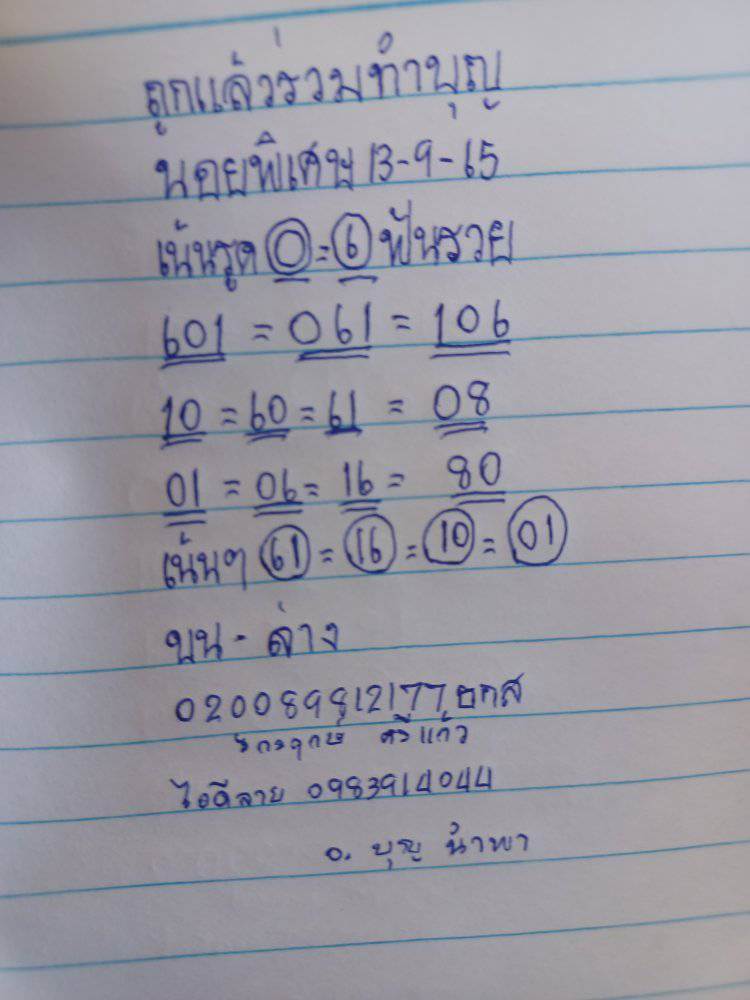 ถูกแล้วร่วมทำบุญ
นอยพิเศษ 13-9-65
เน้นรูด 0=6 ฟันรวย
601 = 061 = 106
10 = 60 = 61 = 08
01 = 06 = 16 = 80
เน้นๆ 61 = 16 = 10 = 01
บน - ล่าง
020089812177 ธกส
ศรีแก้ว
ไอดีลาย 0983914044
อ. บุญ นำพา